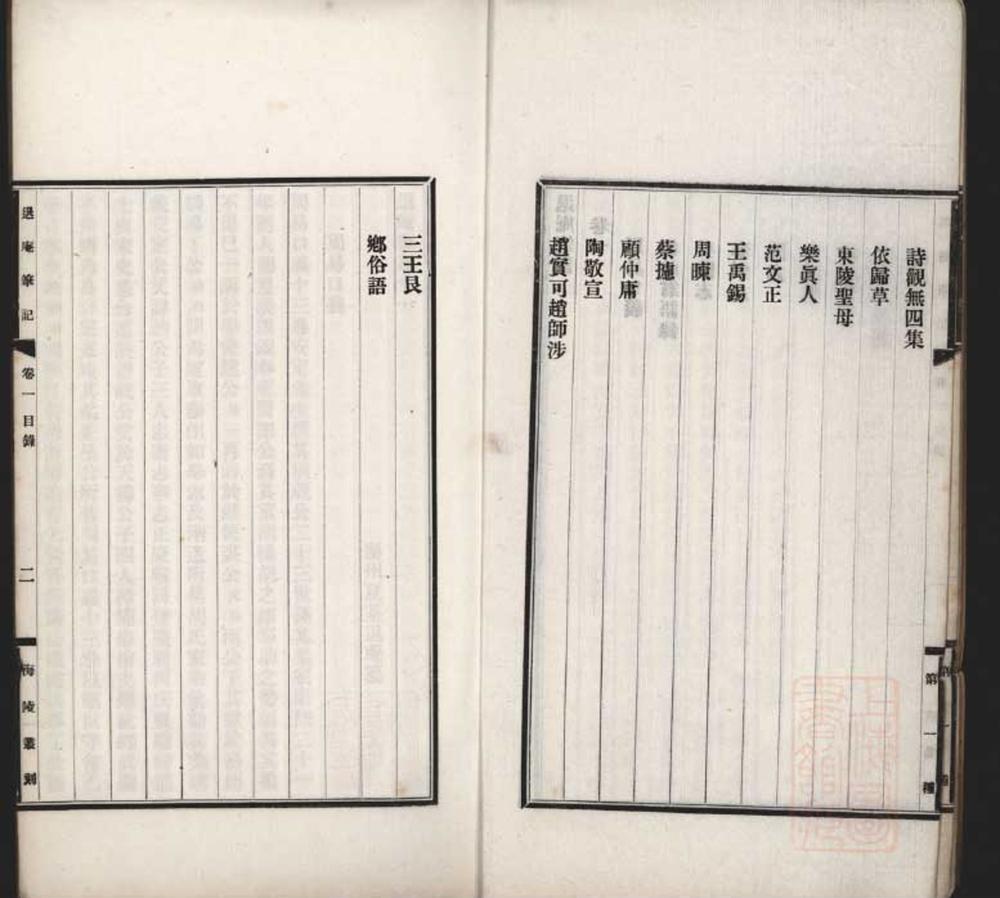 詩觀無四集
依歸草
東陵聖母
樂眞人
范文正
王禹錫
周㬇
蔡摅
顧仲庸
陶敬宣
趙實可趙師涉
第一種
三王艮
鄉俗語
退庵筆記
卷一目錄
二
海陵叢刻